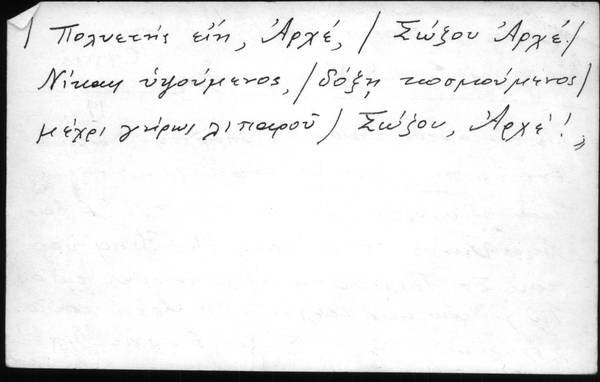 / Πολυετής είη, Ἀρχέ, / Σώζου Ἀρχέ./
Νίκαις ὑψούμενος, /δόξῃ κοσμούμενος/
μέχρι γήρως λιπαροῦ / Σώζου, Ἀρχέ!»